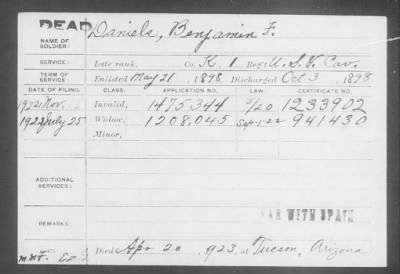 DEAD
NAME OF SOLDIER: Daniels, Benjamin F.
SERVICE: Late rank, Co. K, 1 Reg't U.S.V. Cav.
TERM OF SERVICE: Enlisted May 21 1898 Discharged Oct 3, 1898
DATE OF FILING. CLASS. APPLICATION NO. LAW CERTIFICATE NO.
Nov. Invalid, 1475344 1233902
1923 July 25 Widow, 1208,045 Sep-1-22 941430
Minor,
ADDITIONAL SERVICES:
WAR WITH SPAIN
REMARKS:
Died Apr 20, 1923, at Tucson, Arizona